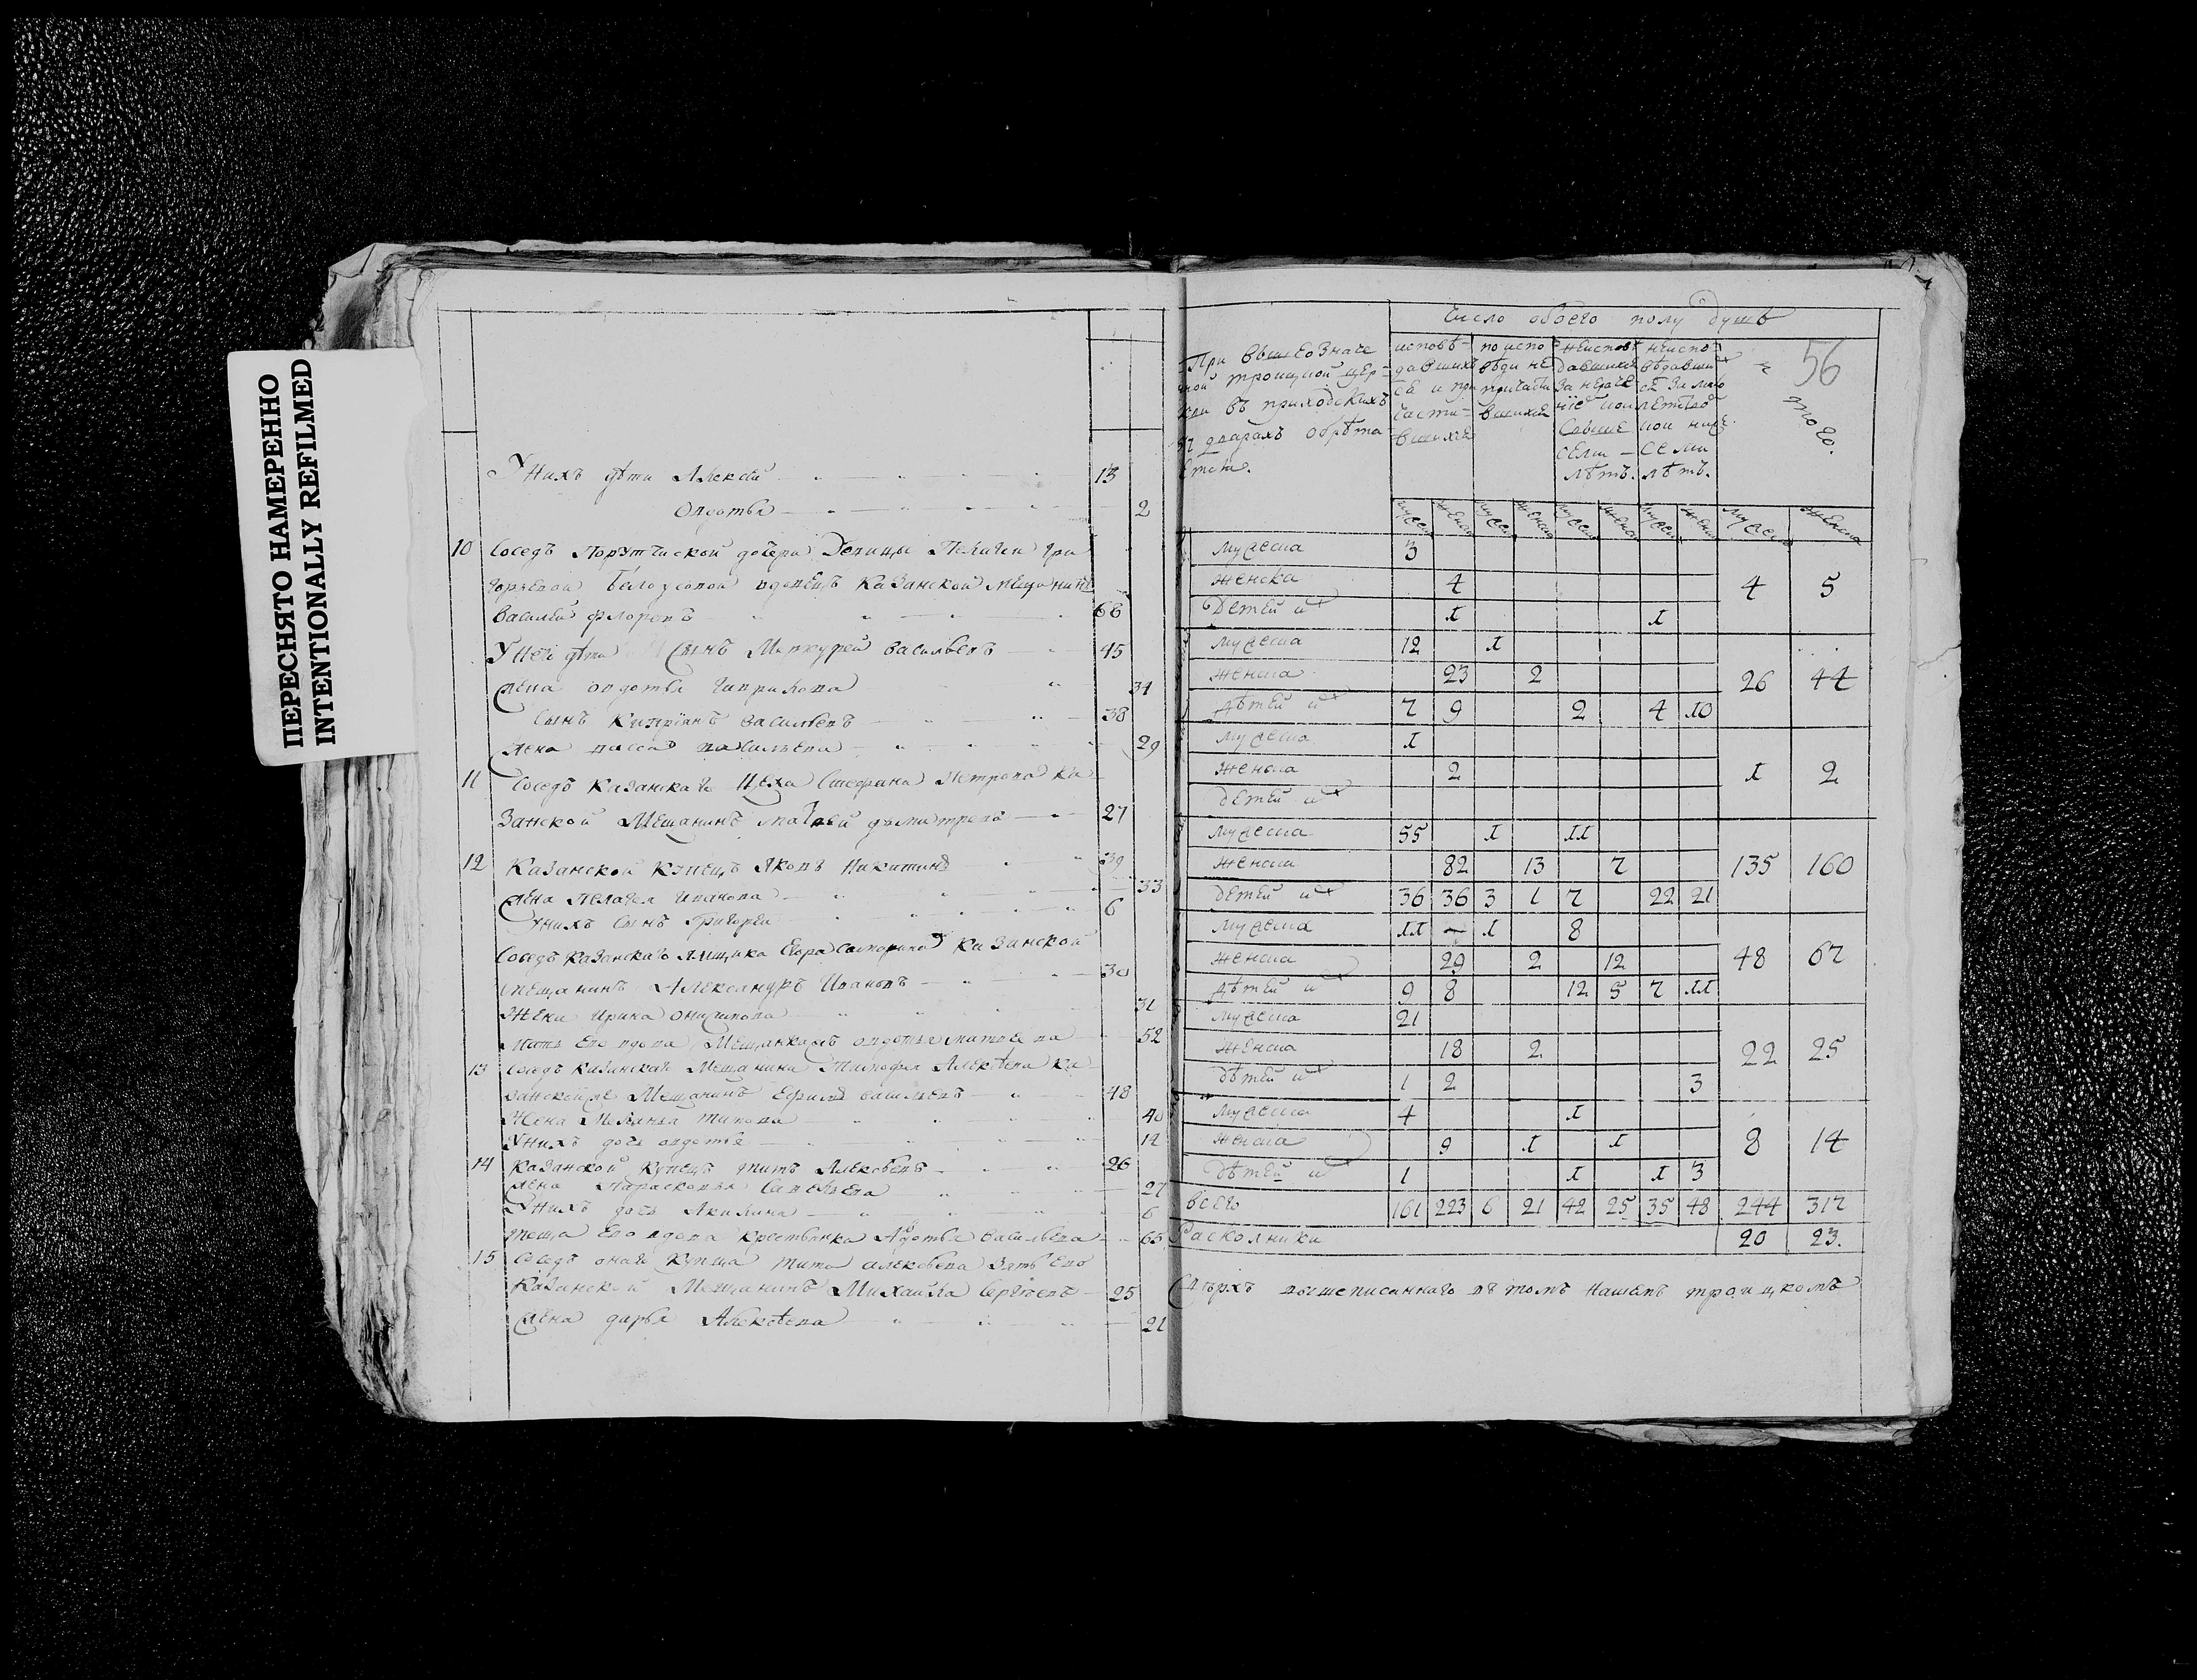 ПЕРЕСНЯТО НАМЕРЕННО
INTENTIONALLY REFILMED
У нихъ дѣти Алексей 13
Овдотья 2
10 Соседъ Порутческой дочери девицы Пелагеи Гри
горьевой Белоусовой вдовецъ Казанской мещанинъ
Василей Флоровъ 68
У него дѣти сынъ Меркурей Васильевъ 45
Жена Овдотья Гаврилова 31
Сынъ Киприянъ Васильевъ 38
Жена Васса Васильева 29
11 Соседъ Казанскаго Цеха Стефана Петрова Ка
занской Мещанинъ Матвей Дмитревъ 27
12 Казанской Купецъ Яковъ Никитинъ 39
Жена Пелагея Иванова 33
У нихъ сынъ Григорей 6
Соседъ Казанскаго Ямщика Егора Казанской
мещанинъ Александръ Ивановъ 30
Жена Ирина 31
Мать Его вдова Мещанкамъ Овдотья Матвеева 52
13 Соседъ Казанскаго Мещанина Тимофея Алексѣева Ка
занской же Мещанинъ Ефимъ Васильевъ 48
Жена Меланья Титова 40
У нихъ дочь Овдотья 12
14 Казанской Купецъ Титъ Алексѣевъ 26
Жена Парасковья Савельева 27
У нихъ дочь Акилина 6
Теща Его вдова крестьянка Авдотья Васильева 65
15 Соседъ онаго Купца Тита Алексѣева Зять Его
Казанской Мещанинъ Михайла Сергѣевъ 25
Жена Дарья Алексѣева 21
Число обоего полу душъ
56
При вышеозначе
ной троицкой цер-
кви въ приходскихъ
дворахъ обрѣта
ется.
исповѣ-
давшихъ
ся и при
части-
вшихся
по испо
вѣди не
причасти
вшихся
неисповѣ
давшихся
за нераче
ніе мои
Свыше
семи
лѣтъ.
неиспо-
вѣдавши
ся за мало
летство
мои ниже
семи
лѣтъ.
того.
мужеска женска мужеска женска мужеска женска мужеска женска мужеска женска
мужеска 3
женска 4 4 5
Детей их 1 1
мужеска 12 1
женска 23 2 26 44
дѣтей их 7 9 2 4 10
мужеска 1
женска 2 1 2
детей их
мужеска 55 1 11
женска 82 13 7 135 160
детей их 36 36 3 1 7 22 21
мужеска 11 1 8
женска 29 2 12 48 67
дѣтей их 9 8 12 5 7 11
мужеска 21
женска 18 2 22 25
дѣтей их 1 2 3
мужеска 4 1
женска 9 1 1 8 14
дѣтей их 1 1 1 3
всего 161 223 6 21 42 25 35 48 244 317
Расколники 20 23.
Сверхъ вышеписаннаго въ томъ нашемъ троицкомъ